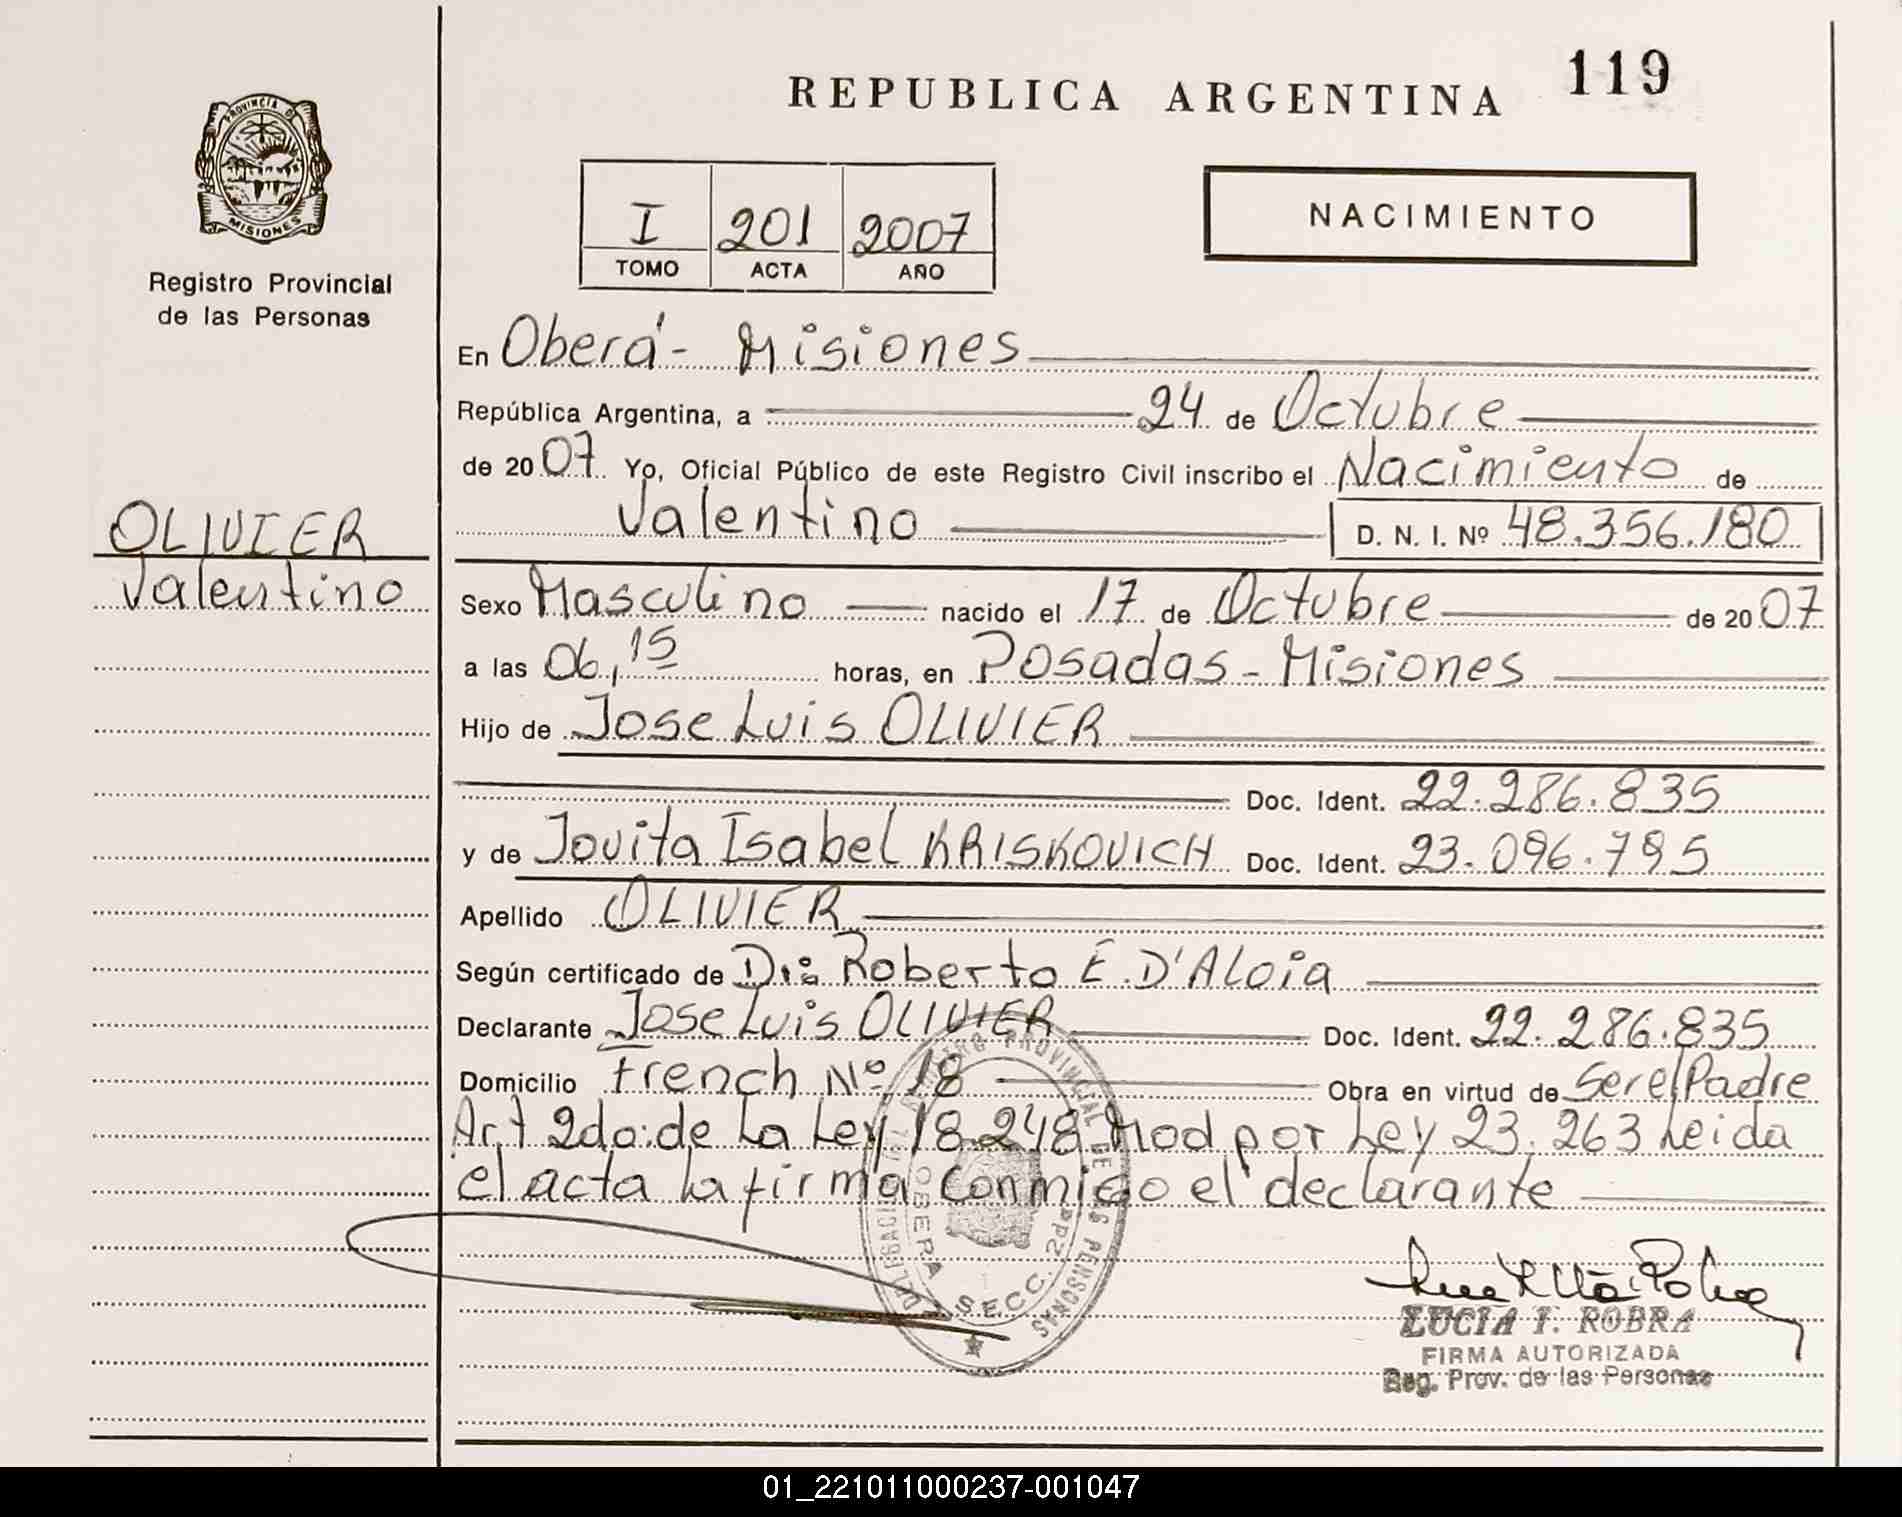 119
REPUBLICA ARGENTINA
PROVINCIA DE
MISIONES
Registro Provincial
de las Personas
I 201 2007
TOMO ACTA AÑO
NACIMIENTO
OLIVIER
Valentino
En Oberá - Misiones
República Argentina, a 24 de Octubre
de 2007 Yo, Oficial Público de este Registro Civil inscribo el Nacimiento de
Valentino D. N. I. Nº 48.356.180
Sexo Masculino nacido el 17 de Octubre de 2007
a las 06,15 horas, en Posadas - Misiones
Hijo de Jose Luis OLIVIER
Doc. Ident. 22.286.835
y de Jovita Isabel KRISKOVICH Doc. Ident. 23.096.795
Apellido OLIVIER
Según certificado de Dr: Roberto E. D'Aloia
Declarante Jose Luis OLIVIER Doc. Ident. 22.286.835
Domicilio French Nº 18 Obra en virtud de Ser el Padre
Art 2do: de la Ley 18.248 Mod por Ley 23.263 Leida
el acta la firma conmigo el declarante
REGISTRO PROVINCIAL DE LAS PERSONAS
OBERA SECC. 2da
LUCIA I. ROBRA
FIRMA AUTORIZADA
Reg. Prov. de las Personas
01_221011000237-001047